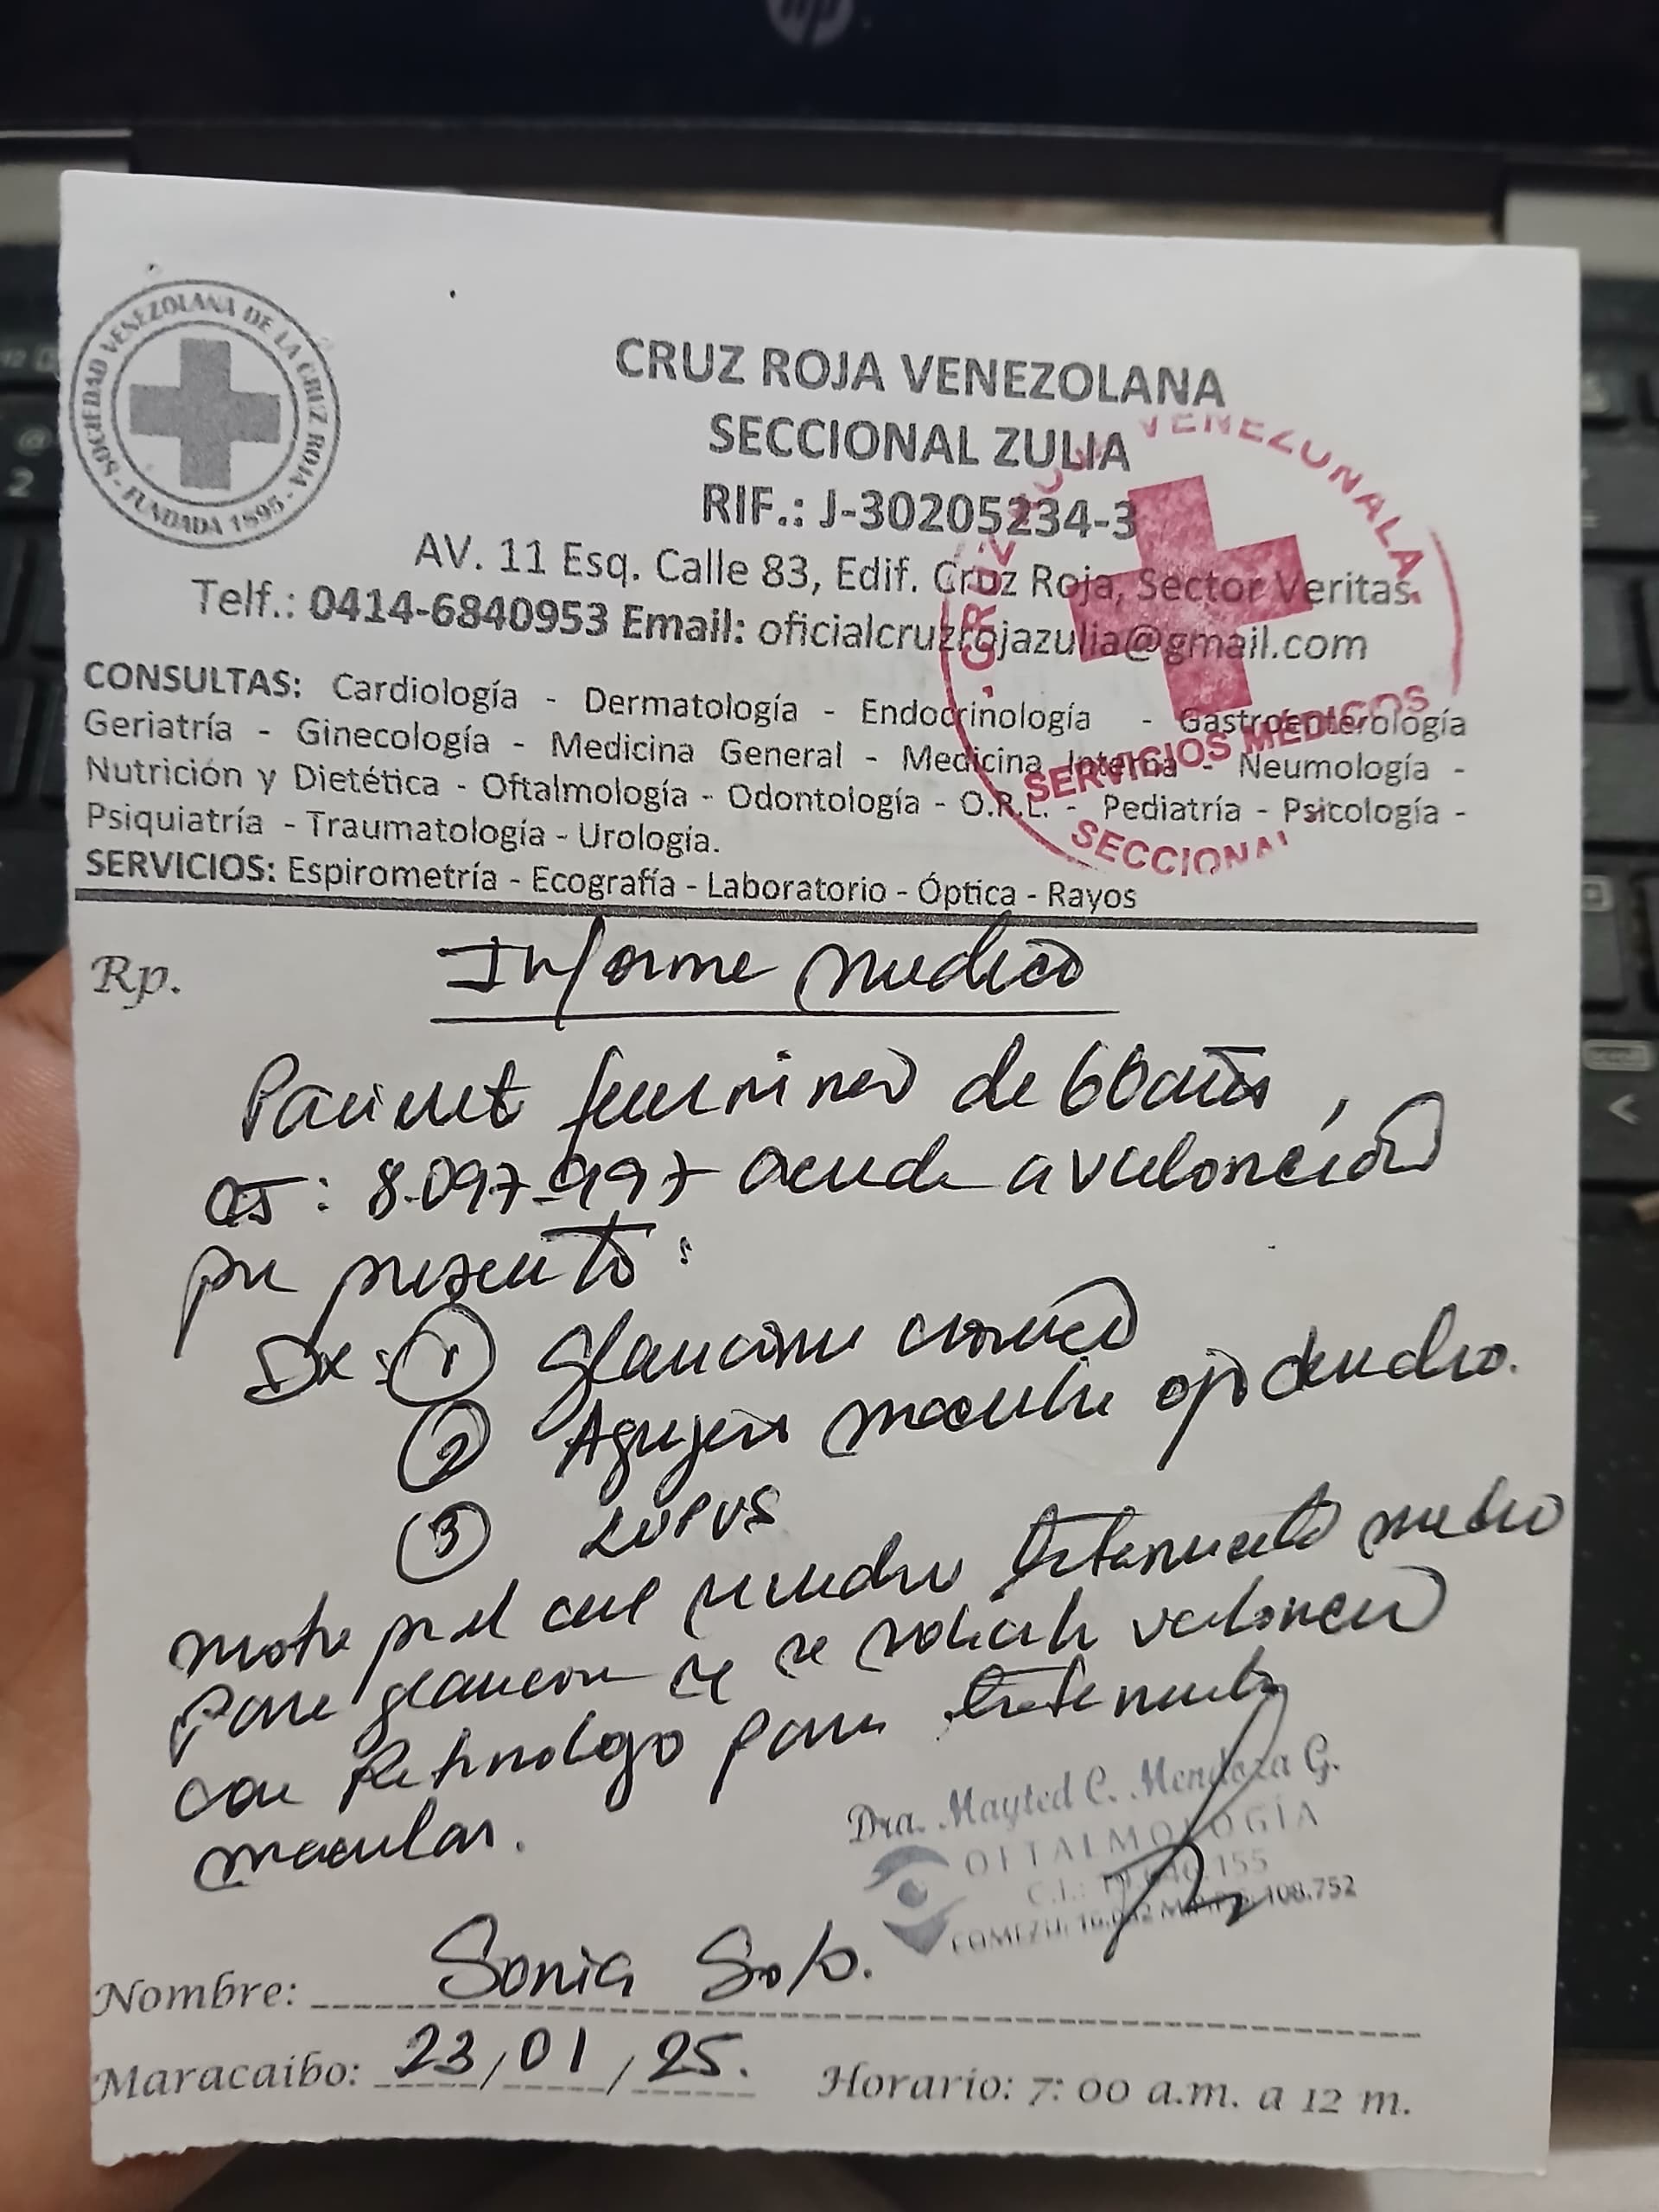 SOCIEDAD VENEZOLANA DE LA CRUZ ROJA - FUNDADA 1895 -
CRUZ ROJA VENEZOLANA
SECCIONAL ZULIA
RIF.: J-30205234-3
AV. 11 Esq. Calle 83, Edif. Cruz Roja, Sector Veritas.
Telf.: 0414-6840953 Email: oficialcruzrojazulia@gmail.com
CRUZ VENEZONALA
SERVICIOS MÉDICOS
SECCIONAL
CONSULTAS: Cardiología - Dermatología - Endocrinología - Gastroenterología
Geriatría - Ginecología - Medicina General - Medicina Interna - Neumología -
Nutrición y Dietética - Oftalmología - Odontología - O.R.L. - Pediatría - Psicología -
Psiquiatría - Traumatología - Urología.
SERVICIOS: Espirometría - Ecografía - Laboratorio - Óptica - Rayos
Rp. Informe medico
Paciente femenino de 60 años,
CI: 8.097.997 acude a valoración
por presentar:
Dx: 1 Glaucoma cronico
2 Agujero macular ojo derecho.
3 LUPUS
motivo por el cual tratamiento medico
para glaucoma se solicita valoracion
con Retinologo para tratamiento
macular.
Dra. Mayted C. Mendoza G.
OFTALMOLOGÍA
C.I.: 155
COMEZU: 108.752
Nombre: Sonia Soto.
Maracaibo: 23/01/25. Horario: 7:00 a.m. a 12 m.